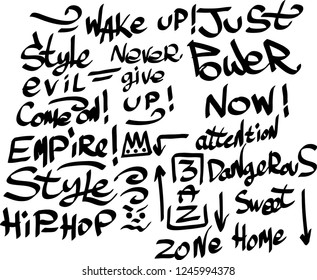 WAKE UP! JUST
Style Never POWER
EVIL = give
Come on! UP! NOW!
EMPIRE! attention
Style DANGEROUS
HIPHOP Sweet
ZONE Home
www.shutterstock.com · 1245994378